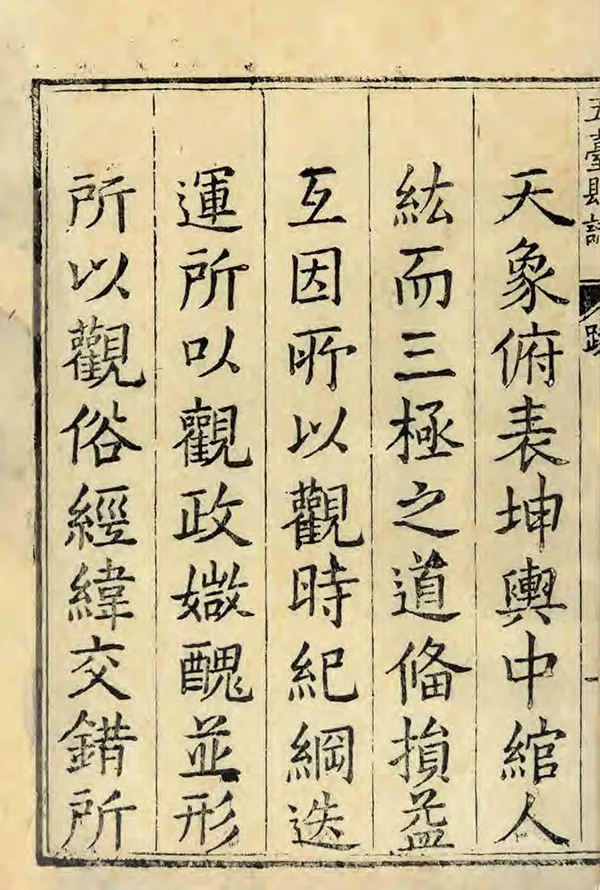 五臺縣誌 跋 一
天象俯表坤輿中綰人
紘而三極之道偹損益
互因所以觀時紀綱迭
運所以觀政媺醜並形
所以觀俗經緯交錯所